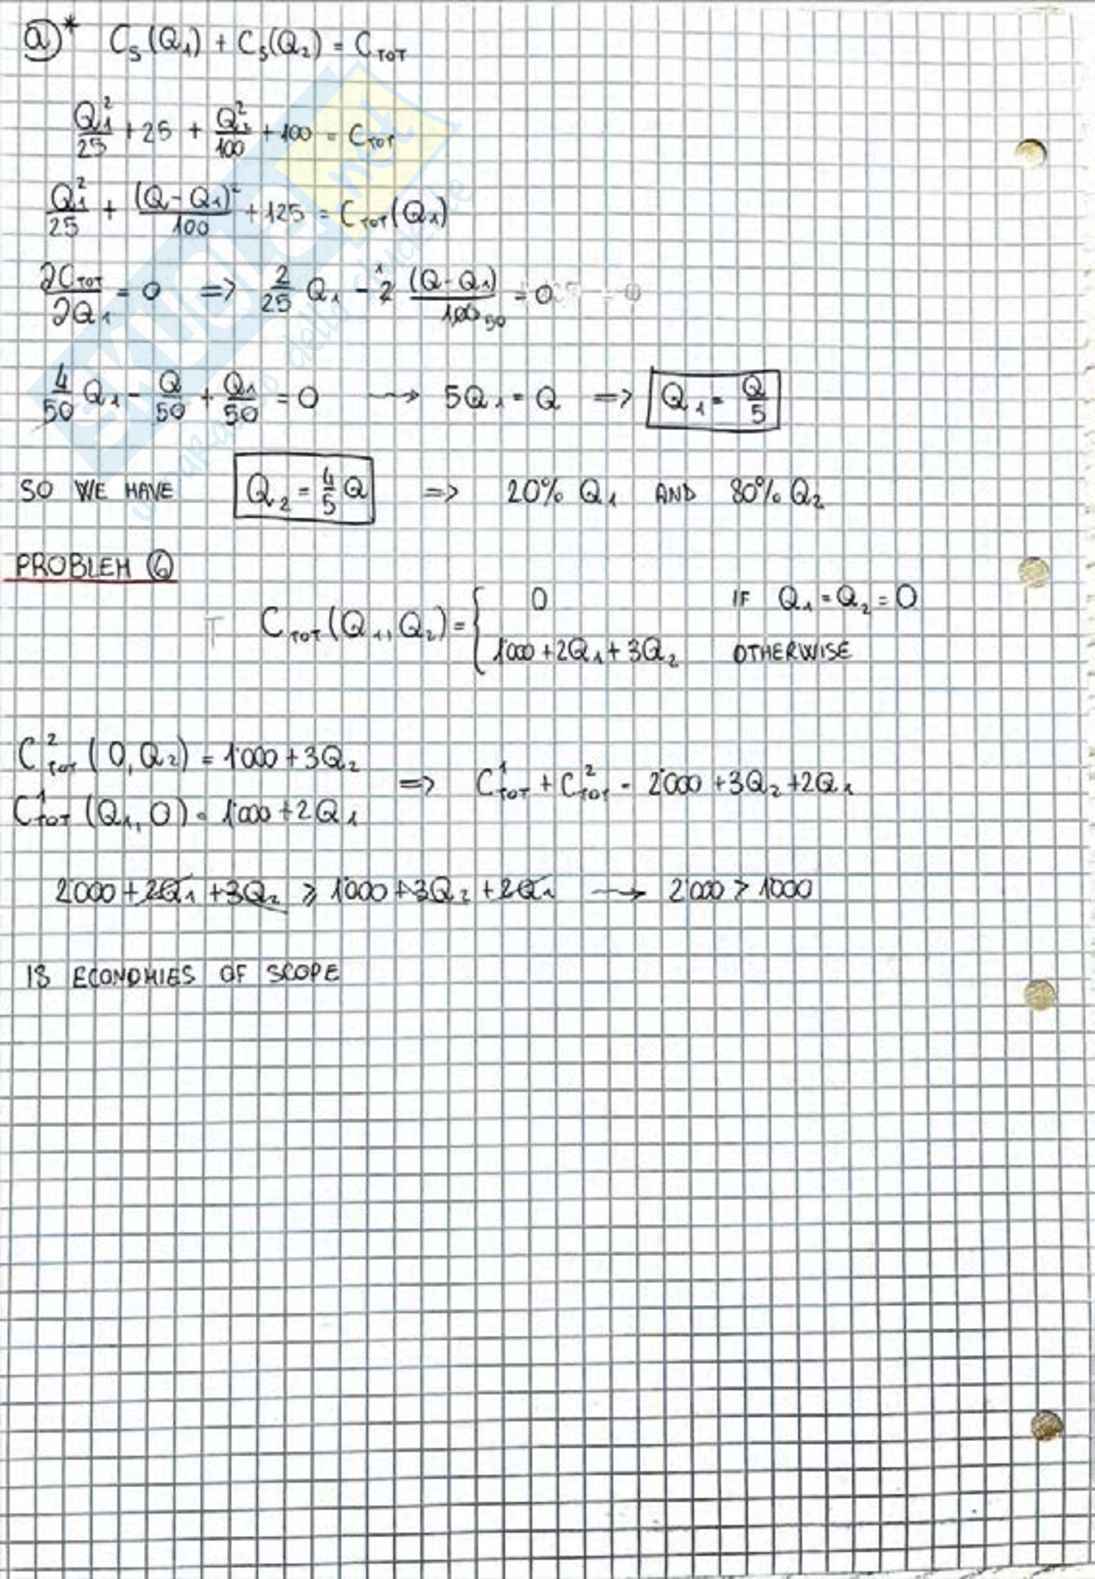 a)* C_S(Q_1) + C_S(Q_2) = C_TOT
Q_1^2/25 + 25 + Q_2^2/100 + 100 = C_TOT
Q_1^2/25 + (Q-Q_1)^2/100 + 125 = C_TOT(Q_1)
∂C_TOT/∂Q_1 = 0 => 2/25 Q_1 - 2 (Q-Q_1)/100 50 = 0
4/50 Q_1 - Q/50 + Q_1/50 = 0 → 5Q_1 = Q => Q_1 = Q/5
SO WE HAVE Q_2 = 4/5 Q => 20% Q_1 AND 80% Q_2
PROBLEM 6
C_TOT(Q_1, Q_2) = { 0 IF Q_1 = Q_2 = 0
1'000 + 2Q_1 + 3Q_2 OTHERWISE
C^2_TOT (0, Q_2) = 1'000 + 3Q_2
C^1_TOT (Q_1, 0) = 1'000 + 2Q_1 => C^1_TOT + C^2_TOT = 2'000 + 3Q_2 + 2Q_1
2'000 + 2Q_1 + 3Q_2 ≥ 1'000 + 3Q_2 + 2Q_1 → 2'000 > 1'000
IS ECONOMIES OF SCOPE